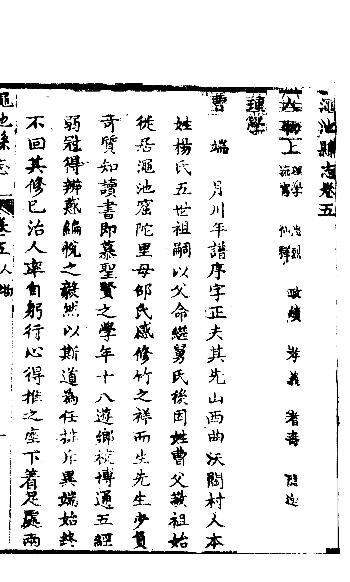 澠池縣志卷五
人物上 理學 忠烈 政績 孝義 耆壽 隱逸
流寓 仙釋
理學
曹端 月川年譜序字正夫其先山西曲沃閻村人本
姓楊氏五世祖嗣以父命繼舅氏後因姓曹父敬祖始
從居澠池窟陀里母邵氏感修竹之祥而生先生少負
奇質知讀書即慕聖賢之學年十八遊鄉校博通五經
弱冠得辨惑編悅之毅然以斯道為任排斥異端始終
不回其修己治人率自躬行心得推之座下着足處兩
澠池縣志 卷五 人物 一